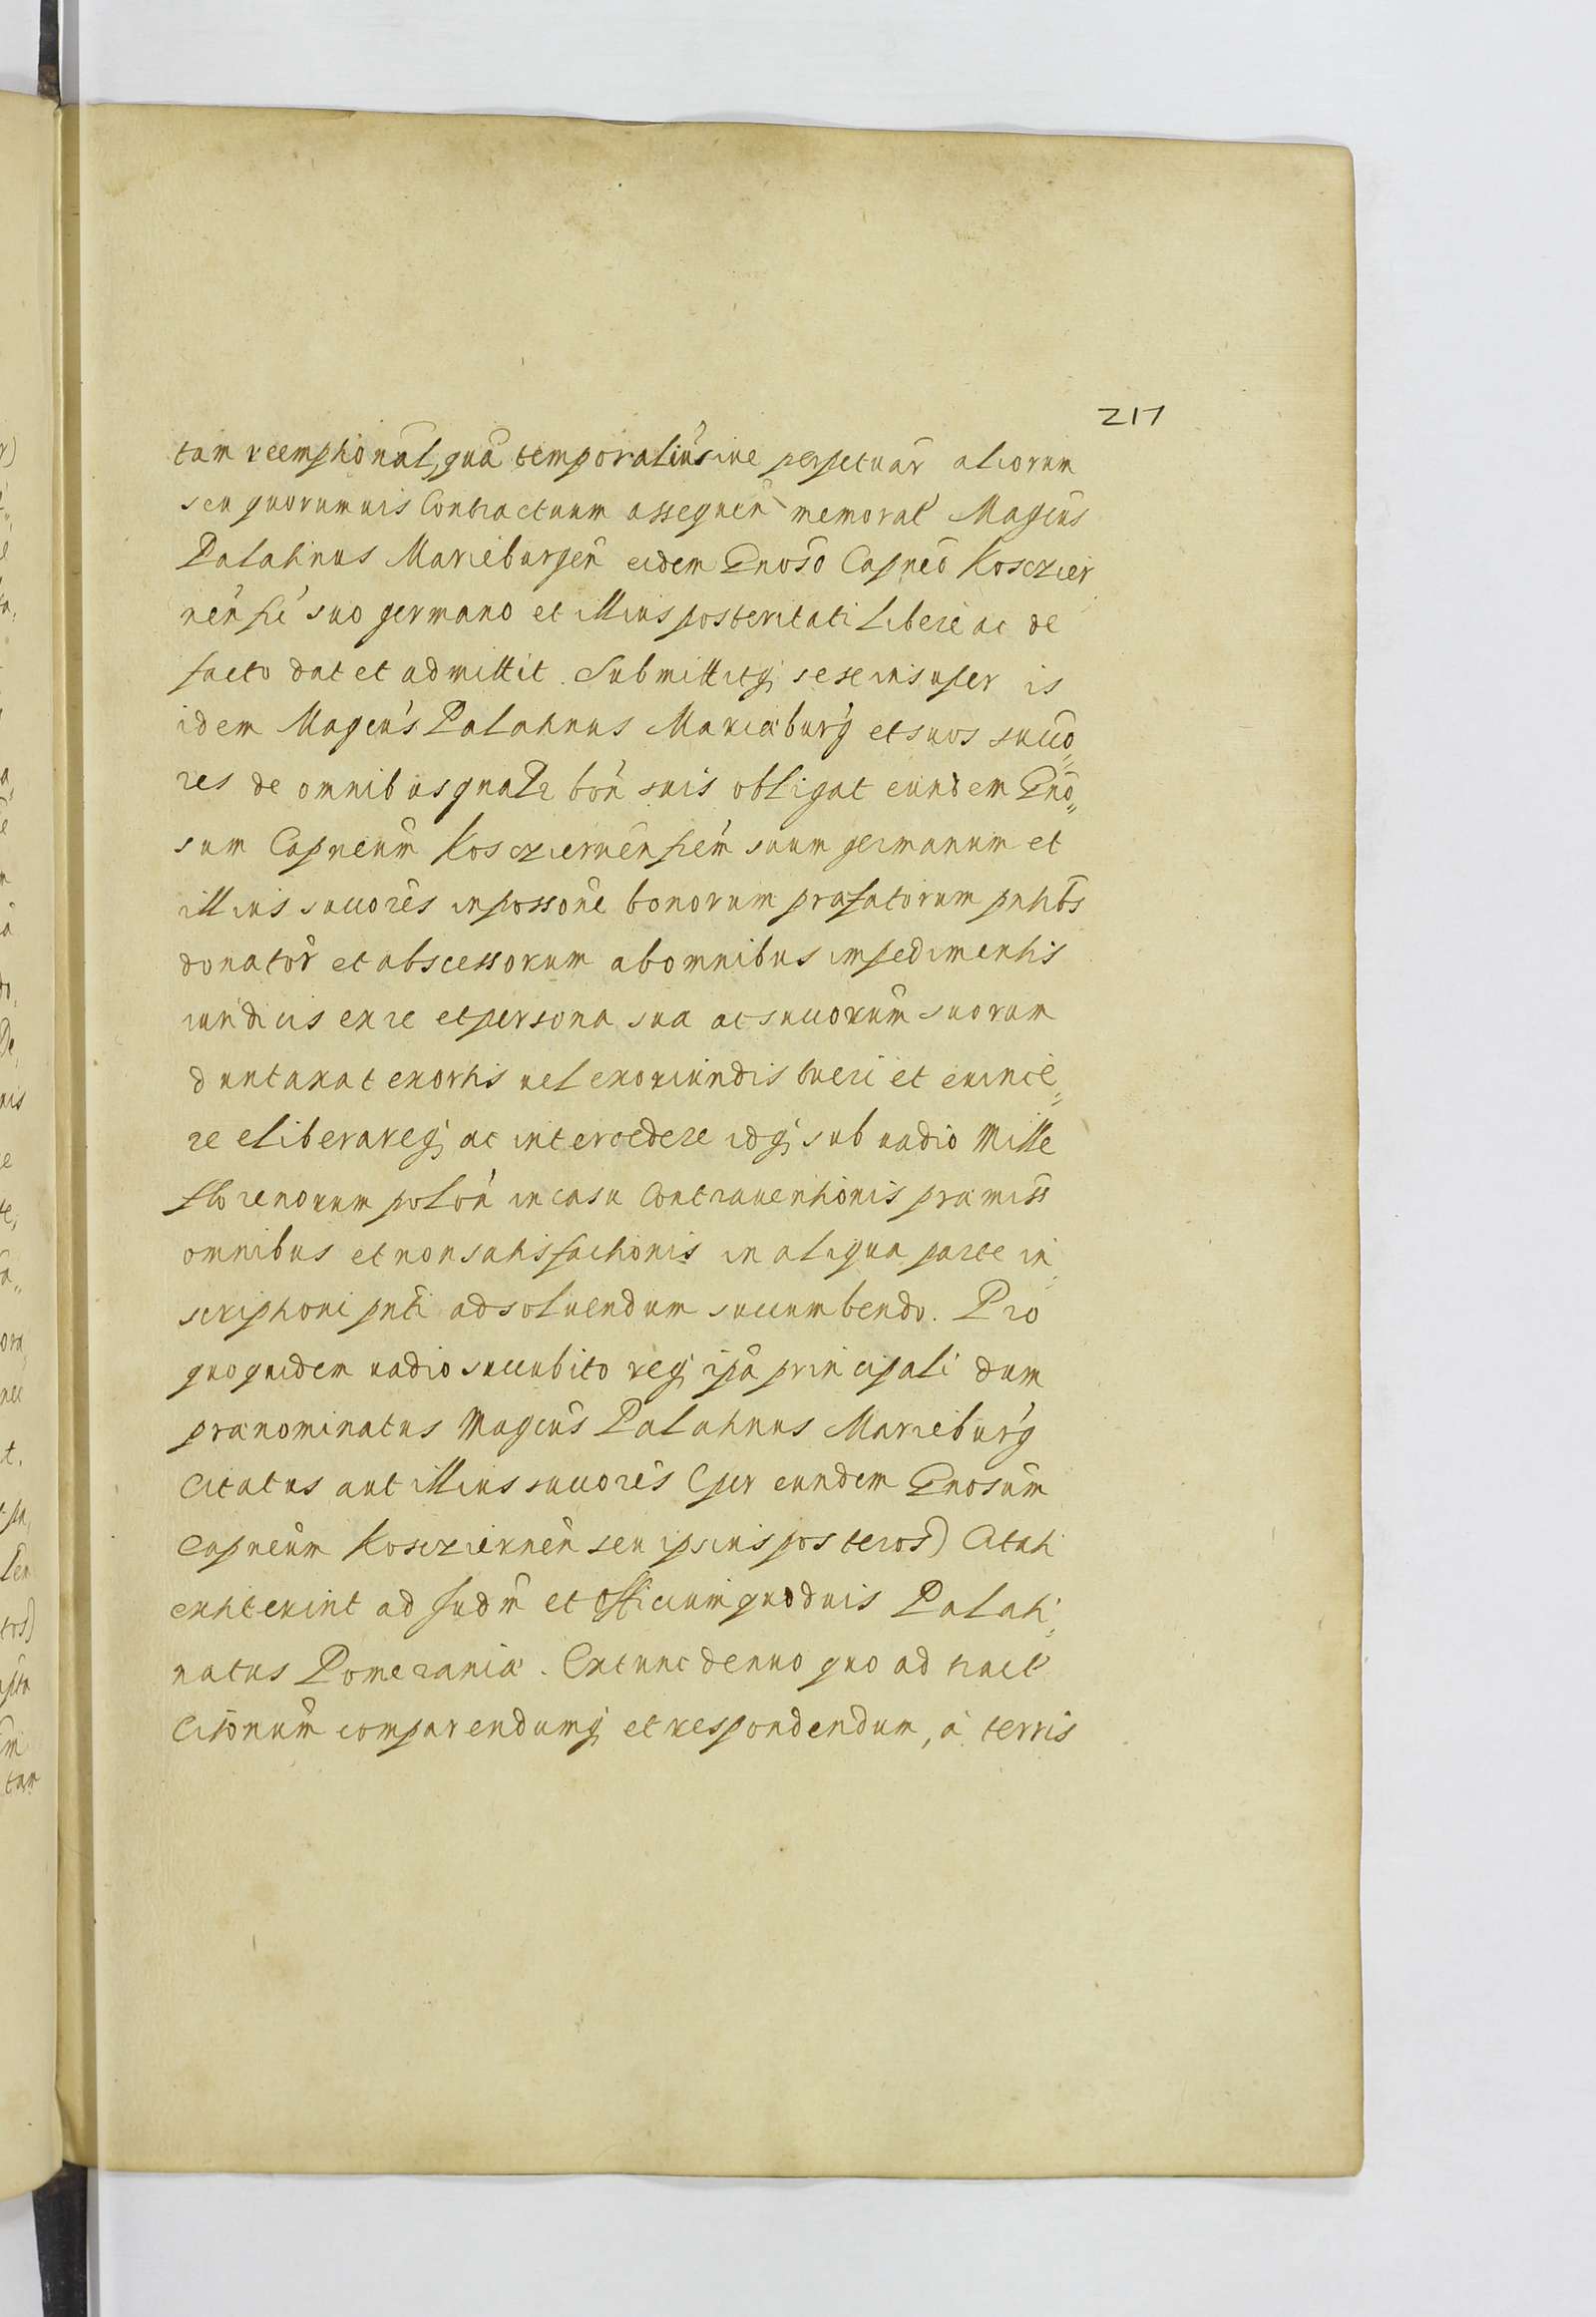 217
tam reemptional, quã temporaliũ siue perpetuar̃ aliorum
seu quorumuis Contractuum assequeñ memorat̃ Magcus
Palatinus Marieburgeñ eidem Gnoso Capneo Kosczier
neñsi suo germano et illius posteritati libere ac de
facto dat et admittit. Submittitq; sese insuper is
idem Magcũs Palatinus Mariæburg̃ et suos succo„
res de omnibus gnalr boñ suis obligat eundem Gno„
sum Capneũm Koscziernẽnsem suum germanum et
illius succores in possone bonorum præfatorum pntibs
donator̃ et abscessorum ab omnibus impedimentis
iuridicis ex re et persona sua ac succorũm suorum
duntaxat exortis uel exoriundis tueri et euince„
re eliberareq; ac intercedere idq; sub uadio Mille
florenorum poloñ in casu Contrauentionis præmiss
omnibus et non satisfactionis in aliqua parte in„
scriptioni pnti ad soluendum succumbendo. Pro
quo quidem uadio succubito req; ipã principali dum
prænominatus Magcũs Palatinus Marieburg̃
Citatus aut illius succores (per eundem Gnosũm
Capneũm Kosczierneñ seu ipsius posteros) Citati
extiterint ad Judm̃ et Officium quoduis Palati„
natus Pomeraniæ. Extunc denuo quo ad
Citonũm comparendumq; et respondendum, à terris